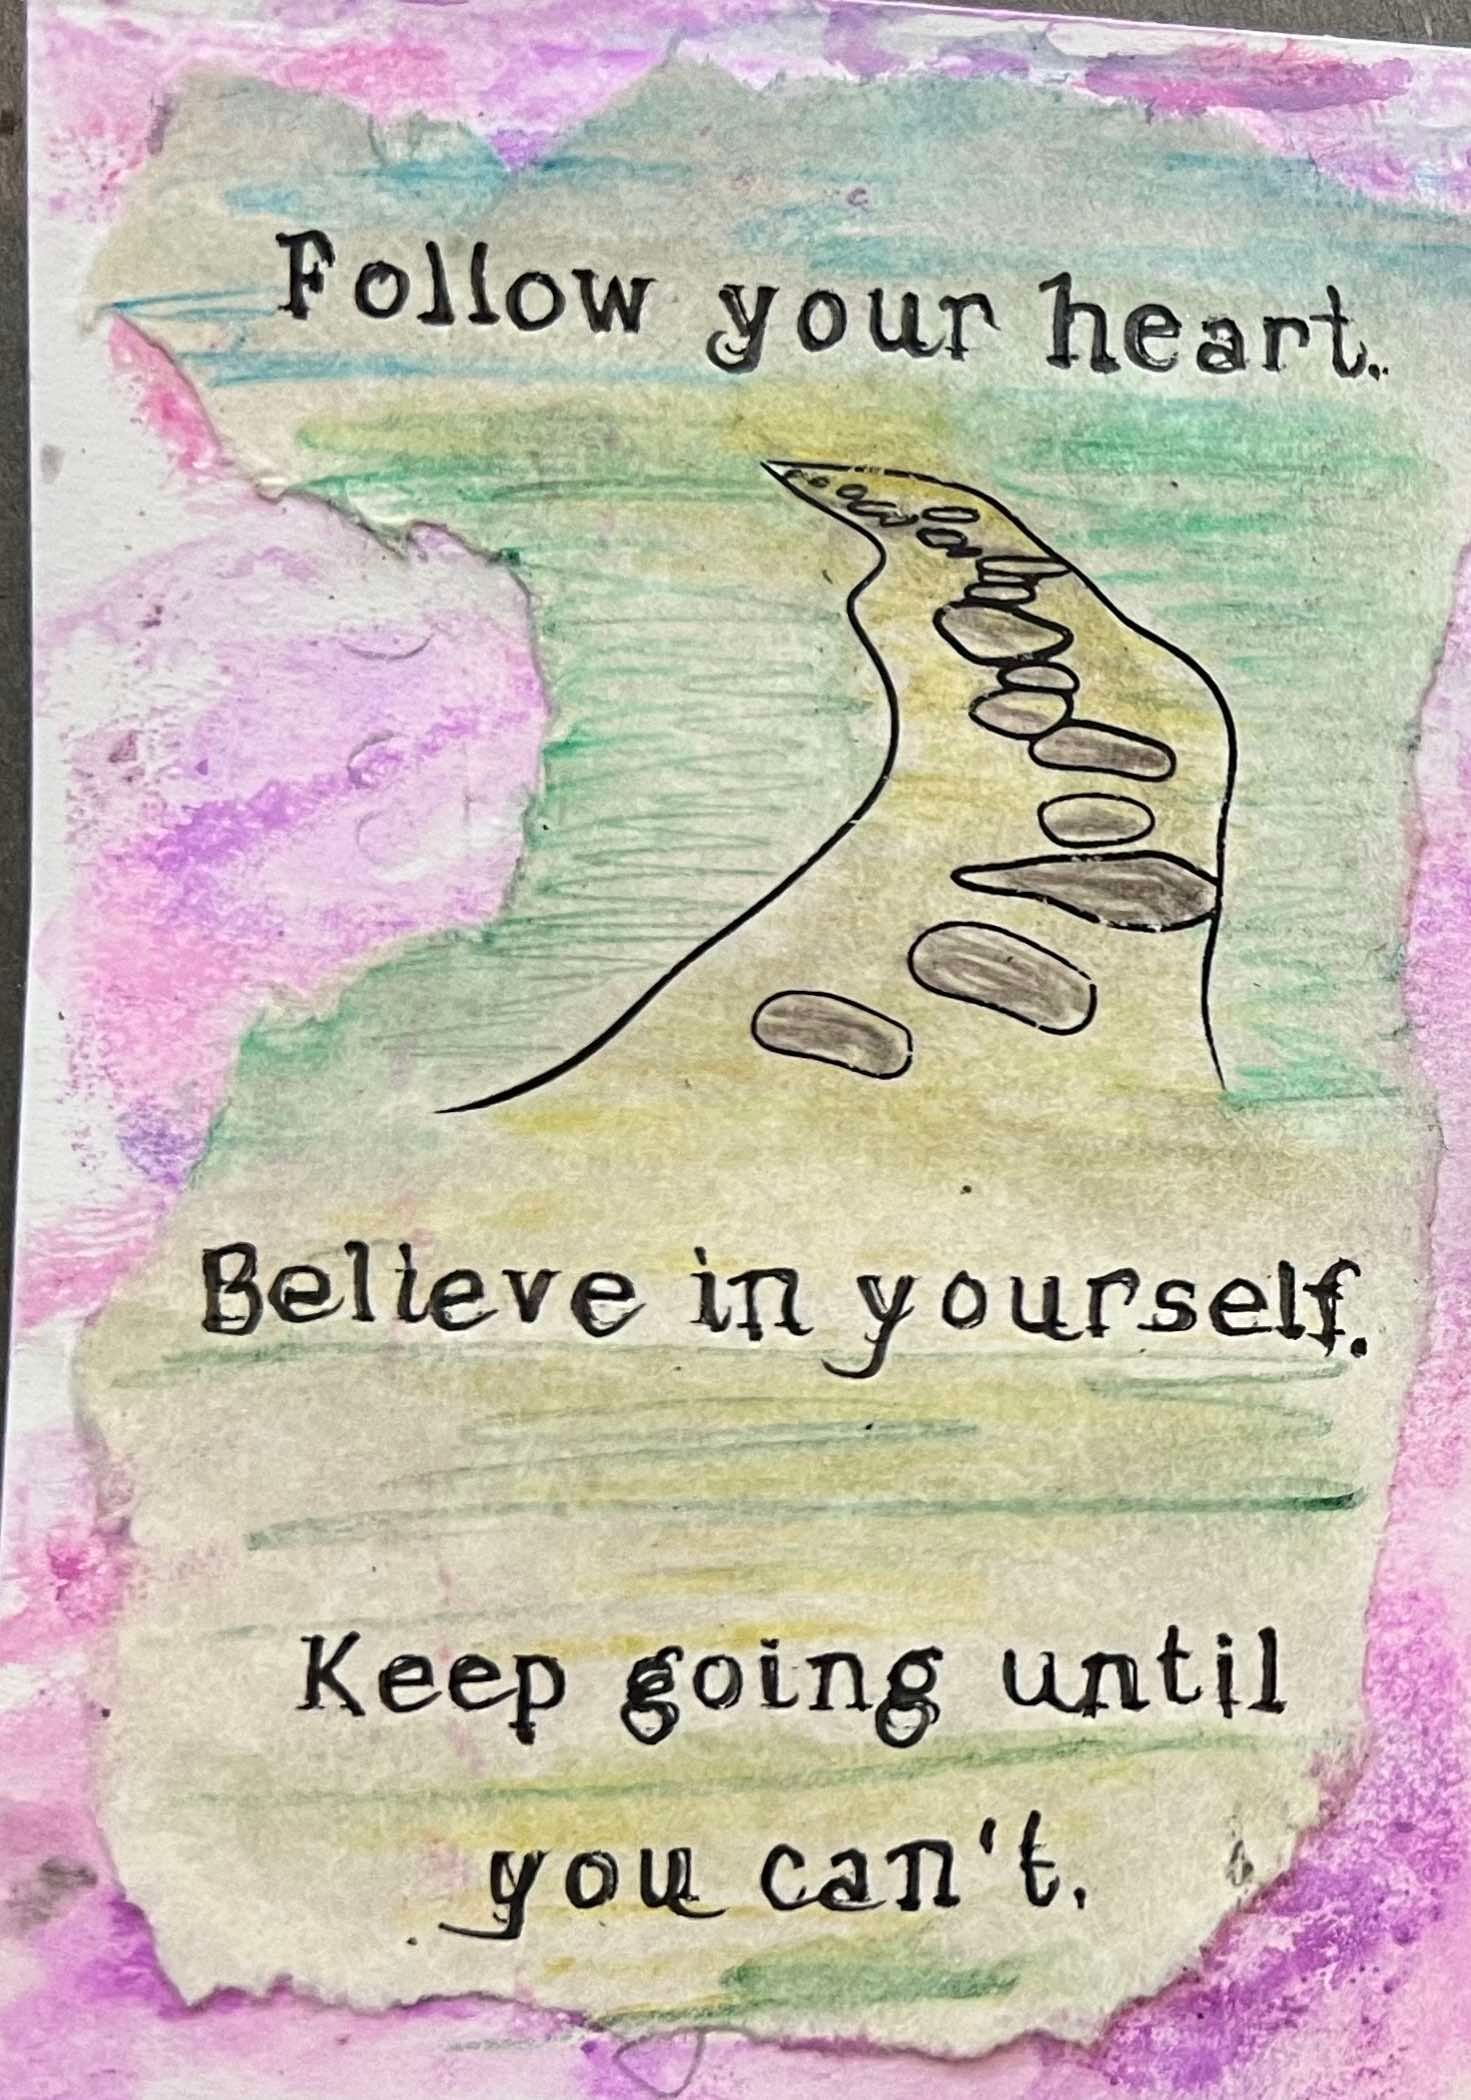 Follow your heart.
Believe in yourself.
Keep going until
you can't.